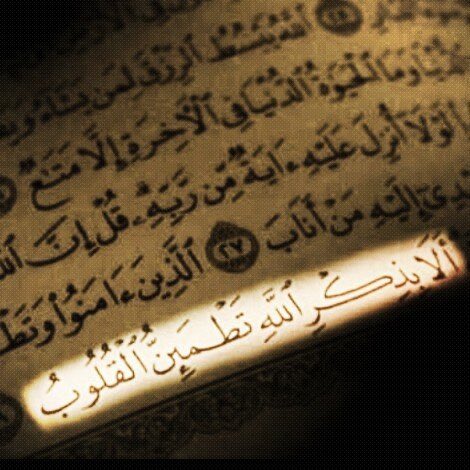 ٱللَّهُ يَبْسُطُ ٱلرِّزْقَ لِمَن يَشَآءُ
ٱلدُّنْيَا وَمَا ٱلْحَيَوٰةُ ٱلدُّنْيَا فِى ٱلْأَخِرَةِ إِلَّا مَتَٰعٌ
لَوْلَآ أُنزِلَ عَلَيْهِ ءَايَةٌ مِّن رَّبِّهِۦ قُلْ إِنَّ ٱللَّهَ
إِلَيْهِ مَنْ أَنَابَ ٢٧ ٱلَّذِينَ ءَامَنُوا۟ وَتَطْ
أَلَا بِذِكْرِ ٱللَّهِ تَطْمَئِنُّ ٱلْقُلُوبُ